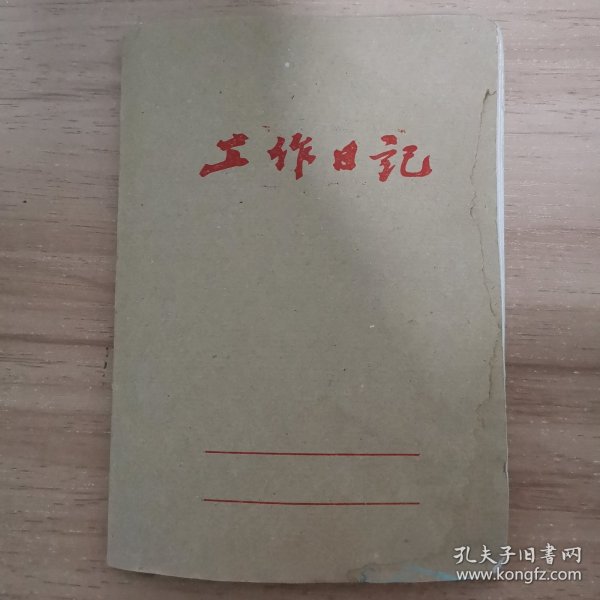 工作日記
孔夫子旧書网
www.kongfz.com